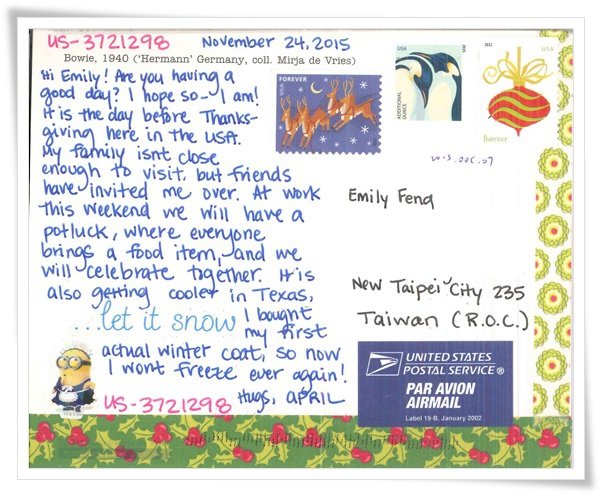 US-3721298
November 24, 2015
Bowie, 1940 ('Hermann' Germany, coll. Mirja de Vries)
Hi Emily! Are you having a
good day? I hope so-- I am!
It is the day before Thanks-
giving here in the USA.
My family isnt close
enough to visit, but friends
have invited me over. At work
this weekend we will have a
potluck, where everyone
brings a food item, and we
will celebrate together. It is
also getting cooler in Texas,
I bought
my first
actual winter coat, so now
I wont freeze ever again!
Hugs, APRIL
...let it snow
US-3721298
FOREVER
USA
USA
ADDITIONAL OUNCE
forever
2015.DEC.07
Emily Feng
New Taipei City 235
Taiwan (R.O.C.)
UNITED STATES
POSTAL SERVICE®
PAR AVION
AIRMAIL
Label 19-B, January 2002